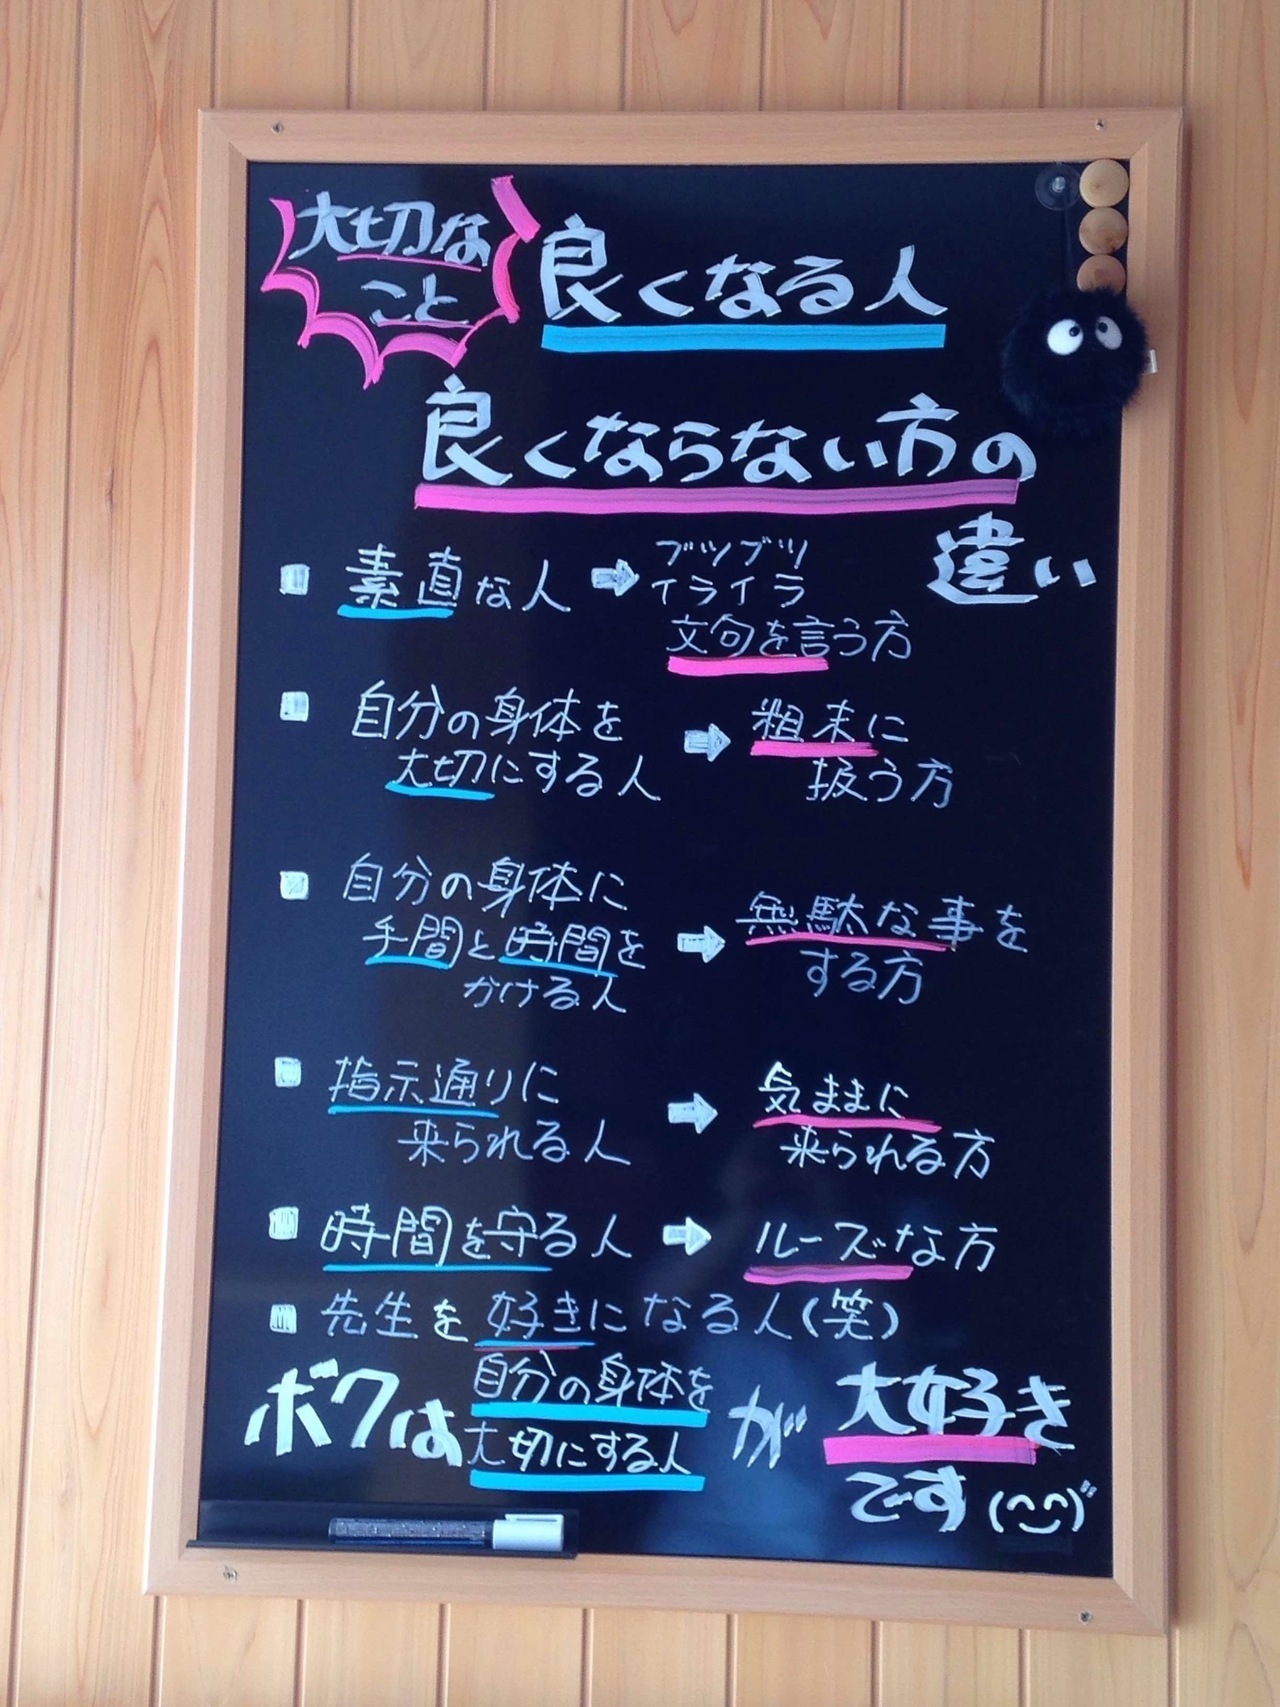 大切な
こと
良くなる人
良くならない方の
違い
素直な人
ブツブツ
イライラ
文句を言う方
自分の身体を
大切にする人
粗末に
扱う方
自分の身体に
手間と時間を
かける人
無駄な事を
する方
指示通りに
来られる人
気ままに
来られる方
時間を守る人
ルーズな方
先生を好きになる人(笑)
ボクは
自分の身体を
大切にする人
が
大好き
です